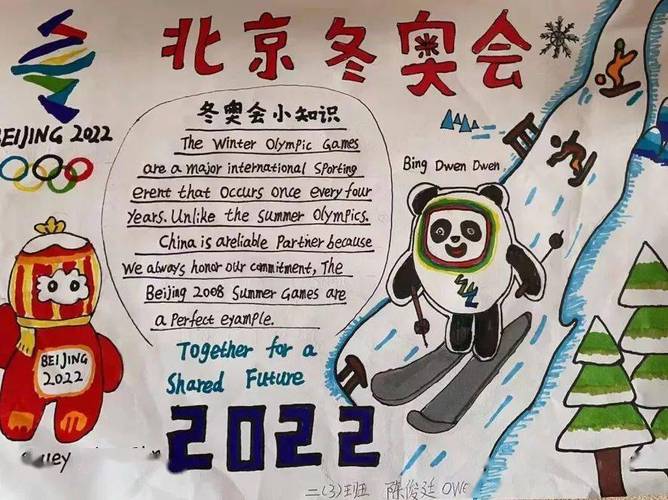 北京冬奥会
BEIJING 2022
冬奥会小知识
The Winter Olympic Games
are a major international Sporting
erent that occurs once every four
years. Unlike the Summer Olympics.
China is areliable Partner because
We always honor our commitment, The
Beijing 2008 Summer Games are
a Perfect eyample.
Bing Dwen Dwen
BEIJING
2022
Together for a
Shared Future
2022
二(3)班